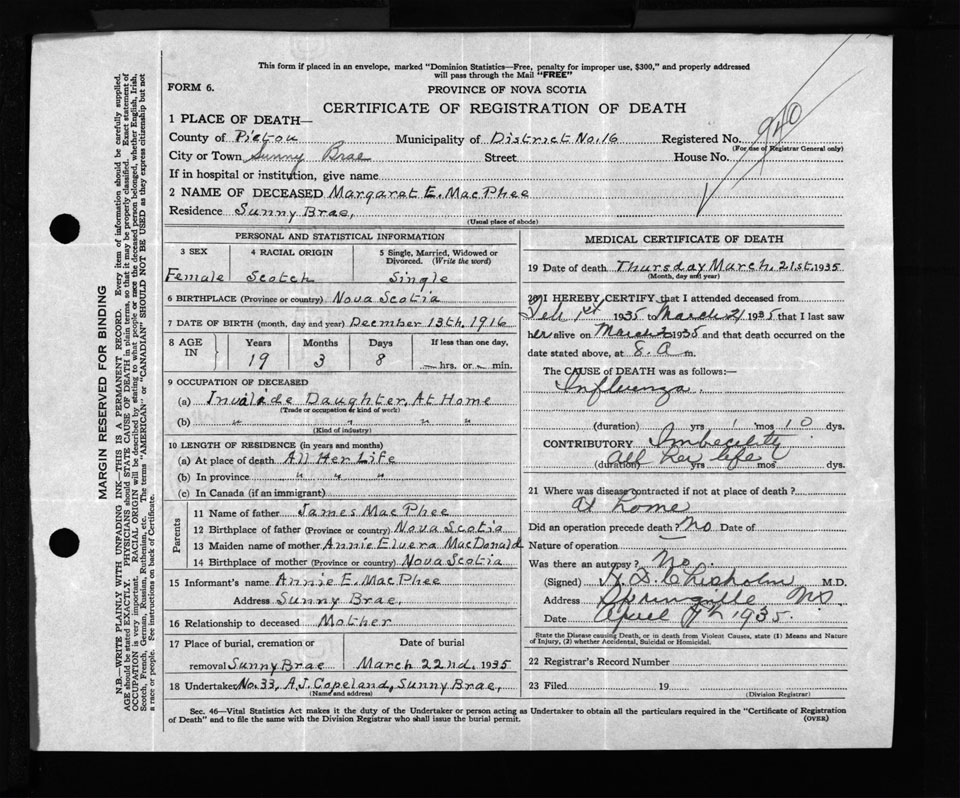 This form if placed in an envelope, marked "Dominion Statistics—Free, penalty for improper use, $300," and properly addressed
will pass through the Mail "FREE"
FORM 6.
PROVINCE OF NOVA SCOTIA
CERTIFICATE OF REGISTRATION OF DEATH
940
1 PLACE OF DEATH—
County of Pictou Municipality of District No. 16 Registered No.
(For use of Registrar General only)
City or Town Sunny Brae Street House No.
If in hospital or institution, give name
2 NAME OF DECEASED Margaret E. MacPhee
Residence Sunny Brae,
(Usual place of abode)
PERSONAL AND STATISTICAL INFORMATION
3 SEX 4 RACIAL ORIGIN 5 Single, Married, Widowed or
Divorced. (Write the word)
Female Scotch Single
6 BIRTHPLACE (Province or country) Nova Scotia
7 DATE OF BIRTH (month, day and year) December 13th, 1916
8 AGE IN Years Months Days If less than one day,
19 3 8 hrs. or min.
9 OCCUPATION OF DECEASED
(a) Invalide Daughter, At Home
(Trade or occupation or kind of work)
(b) " " " "
(Kind of industry)
10 LENGTH OF RESIDENCE (in years and months)
(a) At place of death All Her Life
(b) In province " " "
(c) In Canada (if an immigrant)
Parents
11 Name of father James MacPhee
12 Birthplace of father (Province or country) Nova Scotia
13 Maiden name of mother Annie Elvera MacDonald
14 Birthplace of mother (Province or country) Nova Scotia
15 Informant's name Annie E. MacPhee
Address Sunny Brae,
16 Relationship to deceased Mother
17 Place of burial, cremation or Date of burial
removal Sunny Brae March 22nd. 1935
18 Undertaker No. 33, A.J. Copeland, Sunny Brae,
(Name and address)
MEDICAL CERTIFICATE OF DEATH
19 Date of death Thursday March, 21st, 1935
(Month, day and year)
20 I HEREBY CERTIFY that I attended deceased from
1935 to March 21 1935 that I last saw
her alive on March 1935 and that death occurred on the
date stated above, at 8. A m.
The CAUSE of DEATH was as follows:—
Influenza
(duration) yrs mos 10 dys.
CONTRIBUTORY Imbecility
all her life
(duration) yrs mos dys.
21 Where was disease contracted if not at place of death?
At home
Did an operation precede death? No Date of
Nature of operation
Was there an autopsy? No
(Signed) Chisholm M.D.
Address Springville N.S
Date April 1935.
State the Disease causing Death, or in death from Violent Causes, state (1) Means and Nature
of Injury, (2) whether Accidental, Suicidal or Homicidal.
22 Registrar's Record Number
23 Filed 19
(Division Registrar)
Sec. 46—Vital Statistics Act makes it the duty of the Undertaker or person acting as Undertaker to obtain all the particulars required in the "Certificate of Registration
of Death" and to file the same with the Division Registrar who shall issue the burial permit.
(OVER)
MARGIN RESERVED FOR BINDING
N.B.—WRITE PLAINLY WITH UNFADING INK—THIS IS A PERMANENT RECORD. Every item of information should be carefully supplied.
AGE should be stated EXACTLY. PHYSICIANS should STATE CAUSE OF DEATH in plain terms, so that it may be properly classified. Exact statement of
OCCUPATION is very important. RACIAL ORIGIN will be described by stating to what people or race the deceased person belonged, whether English, Irish,
Scotch, French, German, Russian, Ruthenian, etc. The terms "AMERICAN" or "CANADIAN" SHOULD NOT BE USED as they express citizenship but not
a race or people. See instructions on back of Certificate.